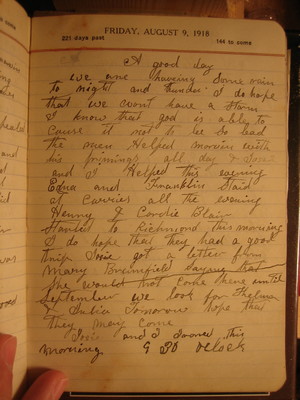 FRIDAY, AUGUST 9, 1918
221 days past 144 to come
A good day
we are haveing Some rain
to night and thunder I do hope
that we wont have a Storm
I know that god is able to
cause it not to be So bad
the men Helped with
his all day & Josie
and I Helped this evening
Edna and Franklin Staid
at Carries all the evening
Henry & Cordie Blair
Started to Richmond this morning
I do hope that they had a good
trip Josie got a letter from
Mary Brumfield Saying that
She would not Come here until
September we look for Thelma
& Subie Tomorow hope that
they may come
Josie and I Ironed this
morning. 9 30 oclock